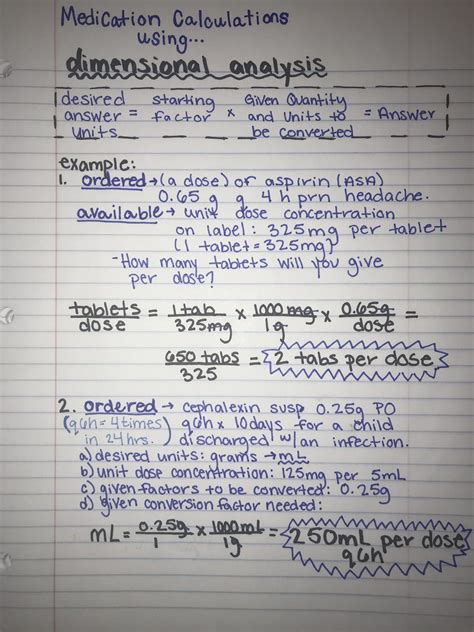 Medication Calculations
using...
dimensional analysis
desired answer units = starting factor x Given Quantity and Units to be converted = Answer
example:
1. ordered → (a dose) of aspirin (ASA)
0.65 g q 4 h prn headache.
available → unit dose concentration
on label: 325mg per tablet
(1 tablet = 325mg)
- How many tablets will you give
per dose?
tablets/dose = 1 tab/325mg x 1000 mg/1g x 0.65g/dose =
650 tabs/325 = 2 tabs per dose
2. ordered → cephalexin susp 0.25g PO
(q6h = 4 times in 24 hrs.) q6h x 10 days for a child
discharged w/ an infection.
a) desired units: grams → mL
b) unit dose concentration: 125mg per 5mL
c) given factors to be converted: 0.25g
d) given conversion factor needed:
mL = 0.25g/1 x 1000mL/1g = 250mL per dose
q6h